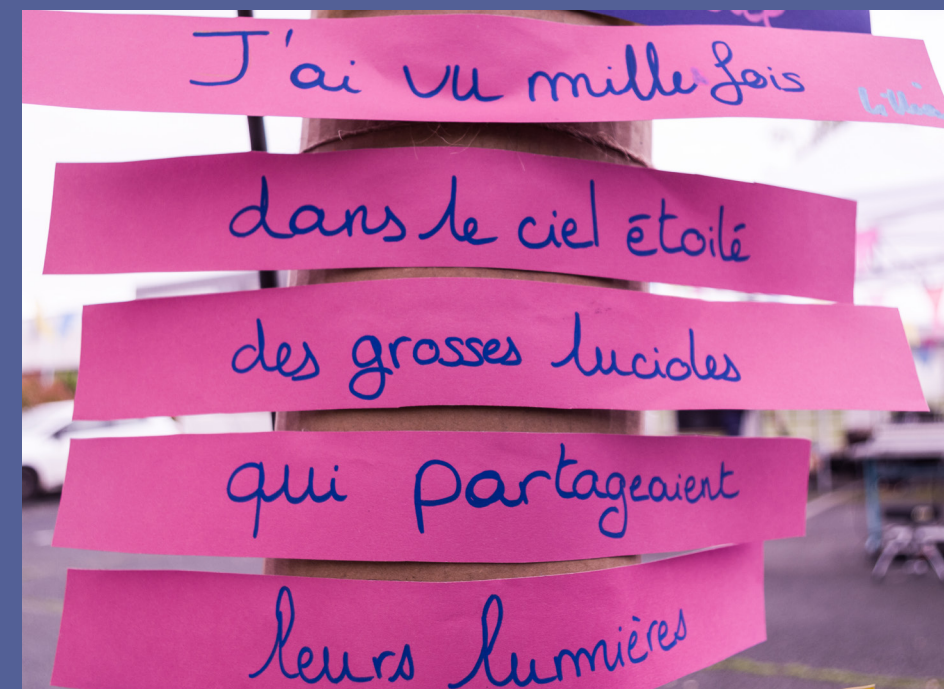 J'ai vu mille fois
dans le ciel étoilé
des grosses lucioles
qui partageaient
leurs lumières